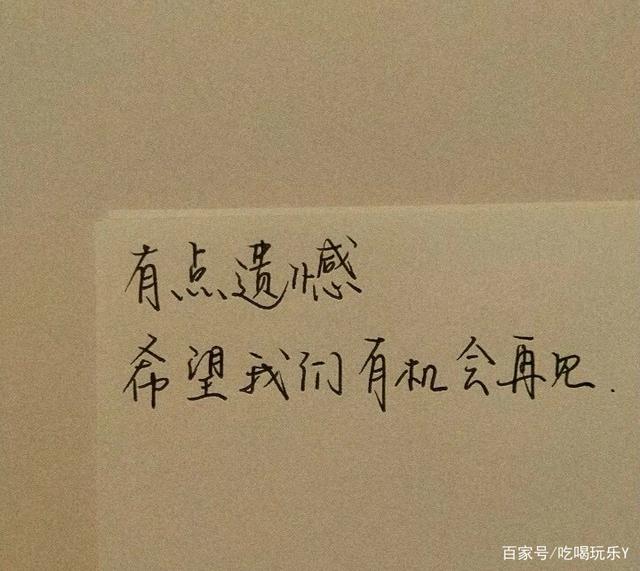 有点遗憾
希望我们有机会再见.
百家号/吃喝玩乐Y